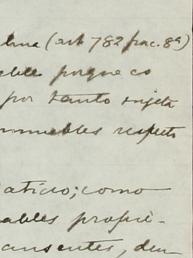 (art 782 frac. 8ª)
porque co
por tanto sujeta
inmuebles respecto
aticio; como
ables propie-
ausentes, deu